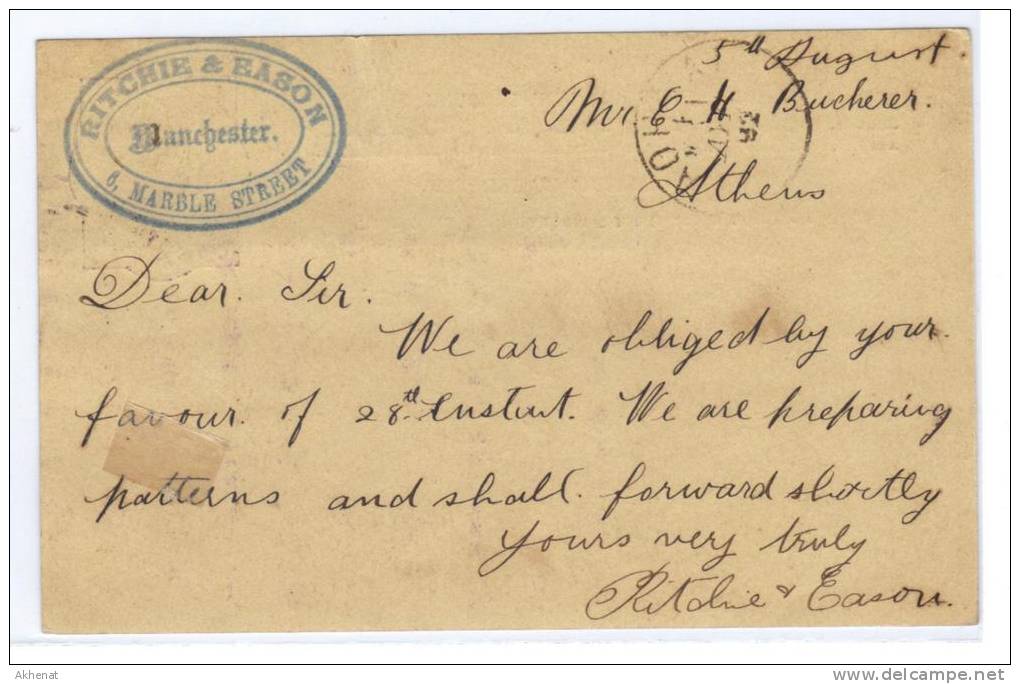 RITCHIE & EASON
Manchester.
6, MARBLE STREET
5th August
Mr. E H Bucherer.
92
Athens
Dear. Sir.
We are obliged by your.
favour. of 28th Instant. We are preparing
patterns and shall. forward shortly
yours very truly
Ritchie & Eason.
Akhenat
www.delcampe.net